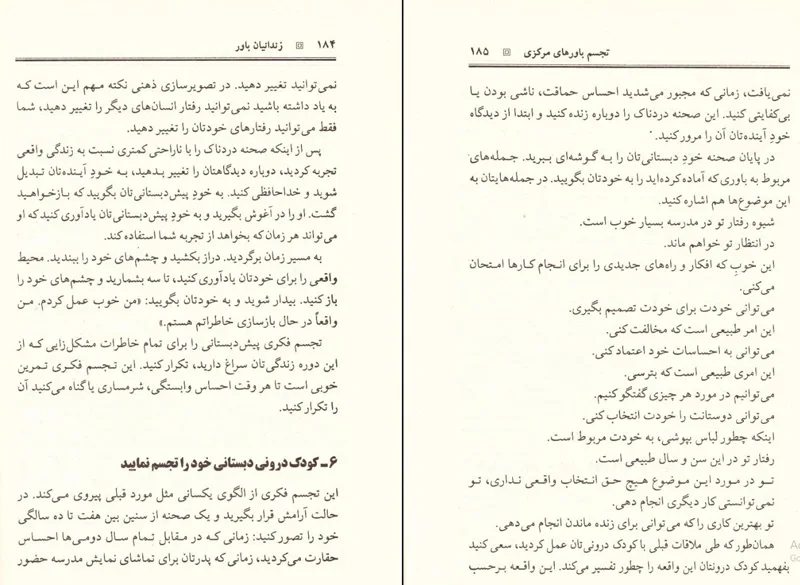 ۱۸۴ زندانیان باور
نمی‌توانید تغییر دهید. در تصویرسازی ذهنی نکته مهم این است که
به یاد داشته باشید نمی‌توانید رفتار انسان‌های دیگر را تغییر دهید، شما
فقط می‌توانید رفتارهای خودتان را تغییر دهید.
پس از اینکه صحنه دردناک را با ناراحتی کمتری نسبت به زندگی واقعی
تجربه کردید، دوباره دیدگاهتان را تغییر بدهید، به خودِ آینده‌تان تبدیل
شوید و خداحافظی کنید. به خودِ پیش‌دبستانی‌تان بگویید که بازخواهید
گشت. او را در آغوش بگیرید و به خودِ پیش‌دبستانی‌تان یادآوری کنید که او
می‌تواند هر زمان که بخواهد از تجربه شما استفاده کند.
به مسیر زمان برگردید. دراز بکشید و چشم‌های خود را ببندید. محیط
واقعی را برای خودتان یادآوری کنید، تا سه بشمارید و چشم‌های خود را
باز کنید. بیدار شوید و به خودتان بگویید: «من خوب عمل کردم. من
واقعاً در حال بازسازی خاطراتم هستم.»
تجسم فکری پیش‌دبستانی را برای تمام خاطرات مشکل‌زایی که از
این دوره زندگی‌تان سراغ دارید، تکرار کنید. این تجسم فکری تمرین
خوبی است تا هر وقت احساس وابستگی، شرمساری یا گناه می‌کنید آن
را تکرار کنید.
۶ـ کودک درونی دبستانی خود را تجسم نمایید
این تجسم فکری از الگوی یکسانی مثل مورد قبلی پیروی می‌کند. در
حالت آرامش قرار بگیرید و یک صحنه از سنین بین هفت تا ده سالگی
خود را تصور کنید: زمانی که در مقابل تمام سال دومی‌ها احساس
حقارت می‌کردید، زمانی که پدرتان برای تماشای نمایش مدرسه حضور
تجسم باورهای مرکزی ۱۸۵
نمی‌یافت، زمانی که مجبور می‌شدید احساس حماقت، ناشی بودن یا
بی‌کفایتی کنید. این صحنه دردناک را دوباره زنده کنید و ابتدا از دیدگاه
خودِ آینده‌تان آن را مرور کنید.
در پایان صحنه خودِ دبستانی‌تان را به گوشه‌ای ببرید. جمله‌های
مربوط به باوری که آماده کرده‌اید را به خودتان بگویید. در جمله‌هایتان به
این موضوع‌ها هم اشاره کنید.
شیوه رفتار تو در مدرسه بسیار خوب است.
در انتظار تو خواهم ماند.
این خوبِ که افکار و راه‌های جدیدی را برای انجام کارها امتحان
می‌کنی.
می‌توانی خودت برای خودت تصمیم بگیری.
این امر طبیعی است که مخالفت کنی.
می‌توانی به احساسات خود اعتماد کنی.
این امری طبیعی است که بترسی.
می‌توانیم در مورد هر چیزی گفتگو کنیم.
می‌توانی دوستانت را خودت انتخاب کنی.
اینکه چطور لباس بپوشی، به خودت مربوط است.
رفتار تو در این سن و سال طبیعی است.
تو در مورد این موضوع هیچ حق انتخاب واقعی نداری، تو
نمی‌توانستی کار دیگری انجام دهی.
تو بهترین کاری را که می‌توانی برای زنده ماندن انجام می‌دهی.
همان‌طور که طی ملاقات قبلی با کودک درونی‌تان عمل کردید، سعی کنید
بفهمید کودک درونتان این واقعه را چطور تفسیر می‌کند. این واقعه برحسب